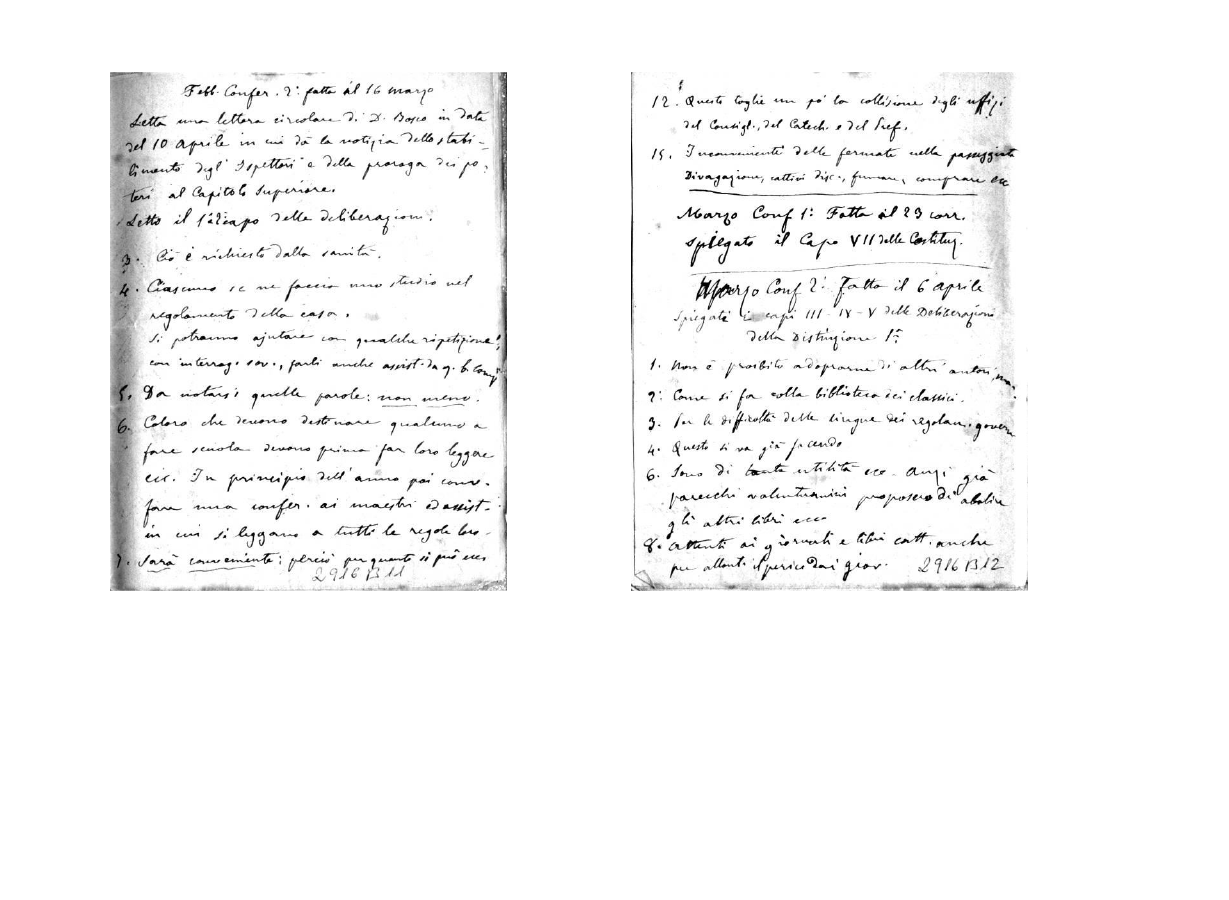 Febb. Confer. 2ª fatta il 16 marzo
Letta una lettera circolare di D. Bosco in data
del 10 Aprile in cui dà la notizia dello stabi-
limento degl' Ispettori e della proroga dei po-
teri al Capitolo Superiore.
Letto il 1º capo delle deliberazioni.
3. Ciò è richiesto dalla sanità.
4. Ciascuno se ne faccia uno studio nel
regolamento della casa.
Si potranno ajutare con qualche ripetizione
con interrog. , farli anche assist. da q.
5. Da notarsi quelle parole: non meno.
6. Coloro che devono destinare qualcuno a
fare scuola devono prima far loro leggere
ecc. In principio dell' anno poi conv.
fare una confer. ai maestri ed assist.
in cui si leggano a tutti le regole loro.
7. Sarà conveniente: perciò per quanto si può ecc
2916 B 11
12. Questo toglie un pò la collisione degli uffizi
del Consigl., del Catech. e del Pref.
15. Inconvenienti delle fermate nella passeggiata
Divagazione, cattivi disc., fumare, comprare ecc
Marzo Conf 1ª Fatta il 23 corr.
Spiegato il Capo VII delle Costituz.
Marzo Conf 2ª Fatta il 6 Aprile
Spiegati i capi III - IV - V delle Deliberazioni
della Distinzione 1ª
1. Non è proibito adoprarne di altri autori,
2. Come si fa colla biblioteca dei classici.
3. Per le difficoltà delle lingue dei regolam. govern
4. Questo si va già facendo
6. Sono di tanta utilità ecc. Anzi già
parecchi proposero di abolire
gli altri libri ecc
8. Attenti ai giornali e libri catt. anche
per allont. il perico dai giov.
2916 B 12